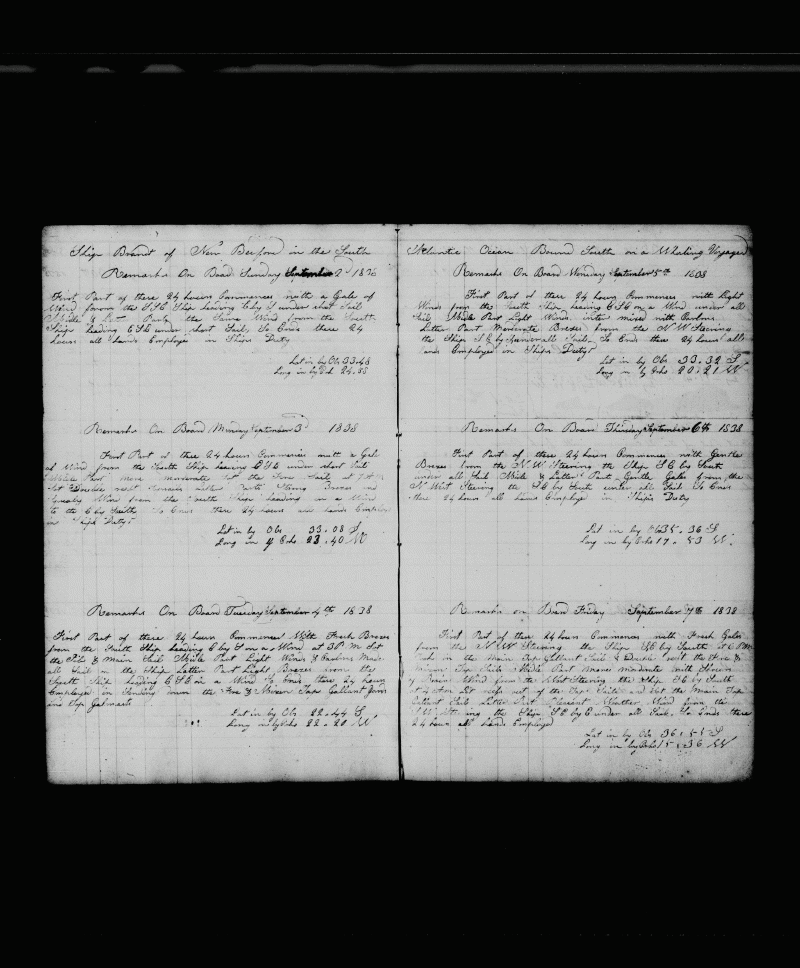 Ship Brandt of New Bedford in the South
Remarks On Board Sunday September 2d 1838
First Part of these 24 hours Commences with a Gale of
Wind from the SSE Ship heading E by S under short Sail
Middle & Latr Parts the Same Wind from the South
Ships heading ESE under short Sail, So Ends these 24
hours all hands Employed in Ships Duty
Lat in by Obs 33.48
Long in by Crh 24.88
Remarks On Board Monday September 3d 1838
First Part of these 24 hours Commences with a Gale
of Wind from the South Ship heading under short Sail
Middle Part more moderate Set the Fore Sail at 7 A
Latter Parts Strong Breezes and
Squally Wind from the South Ships heading on a Wind
to the E by South So Ends these 24 hours all hands Employed
in Ships Duty
Lat in by Obs 33.08 S
Long in by Crhs 23.40 W
Remarks On Board Tuesday September 4th 1838
First Part of these 24 hours Commences With Fresh Breezes
from the South Ship heading E by S on a Wind at 3 P M Set
the Jib & Main Sail Middle Part Light Winds & Made
all Sail on the Ship Latter Part Light Breezes from the
South Ship heading ESE on a Wind So Ends these 24 hours
Employed in Sending down the Fore & Mizen Top Gallant
and Top Galmasts
Lat in by Obs 22.44 S
Long in by Crhs 22.20 W
Atlantic Ocean Bound South on a Whaling Voyage
Remarks On Board Monday September 5th 1838
First Part of these 24 hours Commences with Light
Winds from the South Ship heading ESE on a Wind under all
Sail Middle Part Light Winds inter mixed with
Latter Part Moderate Breezes from the N W Steering
the Ships S E by under all Sail So Ends these 24 hours all
hands Employed in Ships Duty
Lat in by Obs 33.32 S
Long in by Crhs 20.21 W
Remarks On Board Thursday September 6th 1838
First Part of these 24 hours Commences with Gentle
Breezes from the N.W. Steering the Ship SE by South
under all Sail Middle & Latter Part Gentle Gales from the
N West Steering the SE by South under all Sail So Ends
these 24 hours all hands Employed in Ships Duty
Lat in by Obs 35.36 S
Long in by Crhs 17.53 W.
Remarks on Board Friday September 7th 1838
First Part of these 24 hours Commences with Fresh Gales
from the N.W.W Steering the Ships SE by South at 6 PM
Took in the Main Top Gallant Sail & Double reeft the Fore &
Mizen Top Sails Middle Part More moderate with Showers
of Rain Wind from the West Steering the Ship SE by South
at 4 Am Let reefs out of the Top Sails and Set the Main Top
Gallant Sail Latter Part Pleasant Weather Wind from the
Steering the Ship SE by E under all Sail So Ends these
24 hours all hands Employed
Lat in by Obs 36.55 S
Long in by Crhs 15.36 W